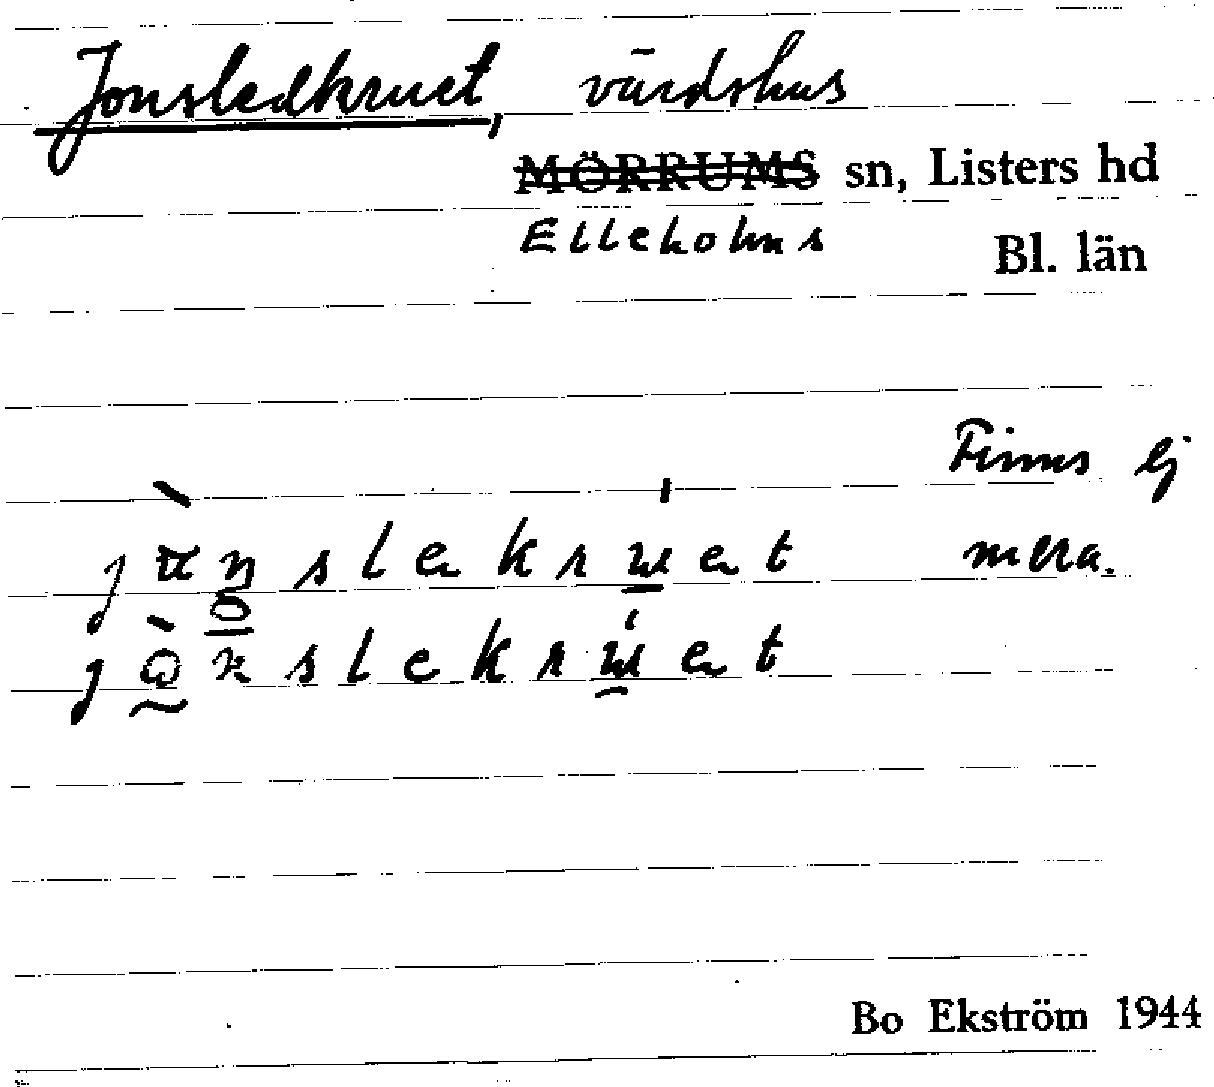 Jonsledkruet, värdshus
MÖRRUMS sn, Listers hd
Elleholms Bl. län
Finns ej
mera.
Bo Ekström 1944